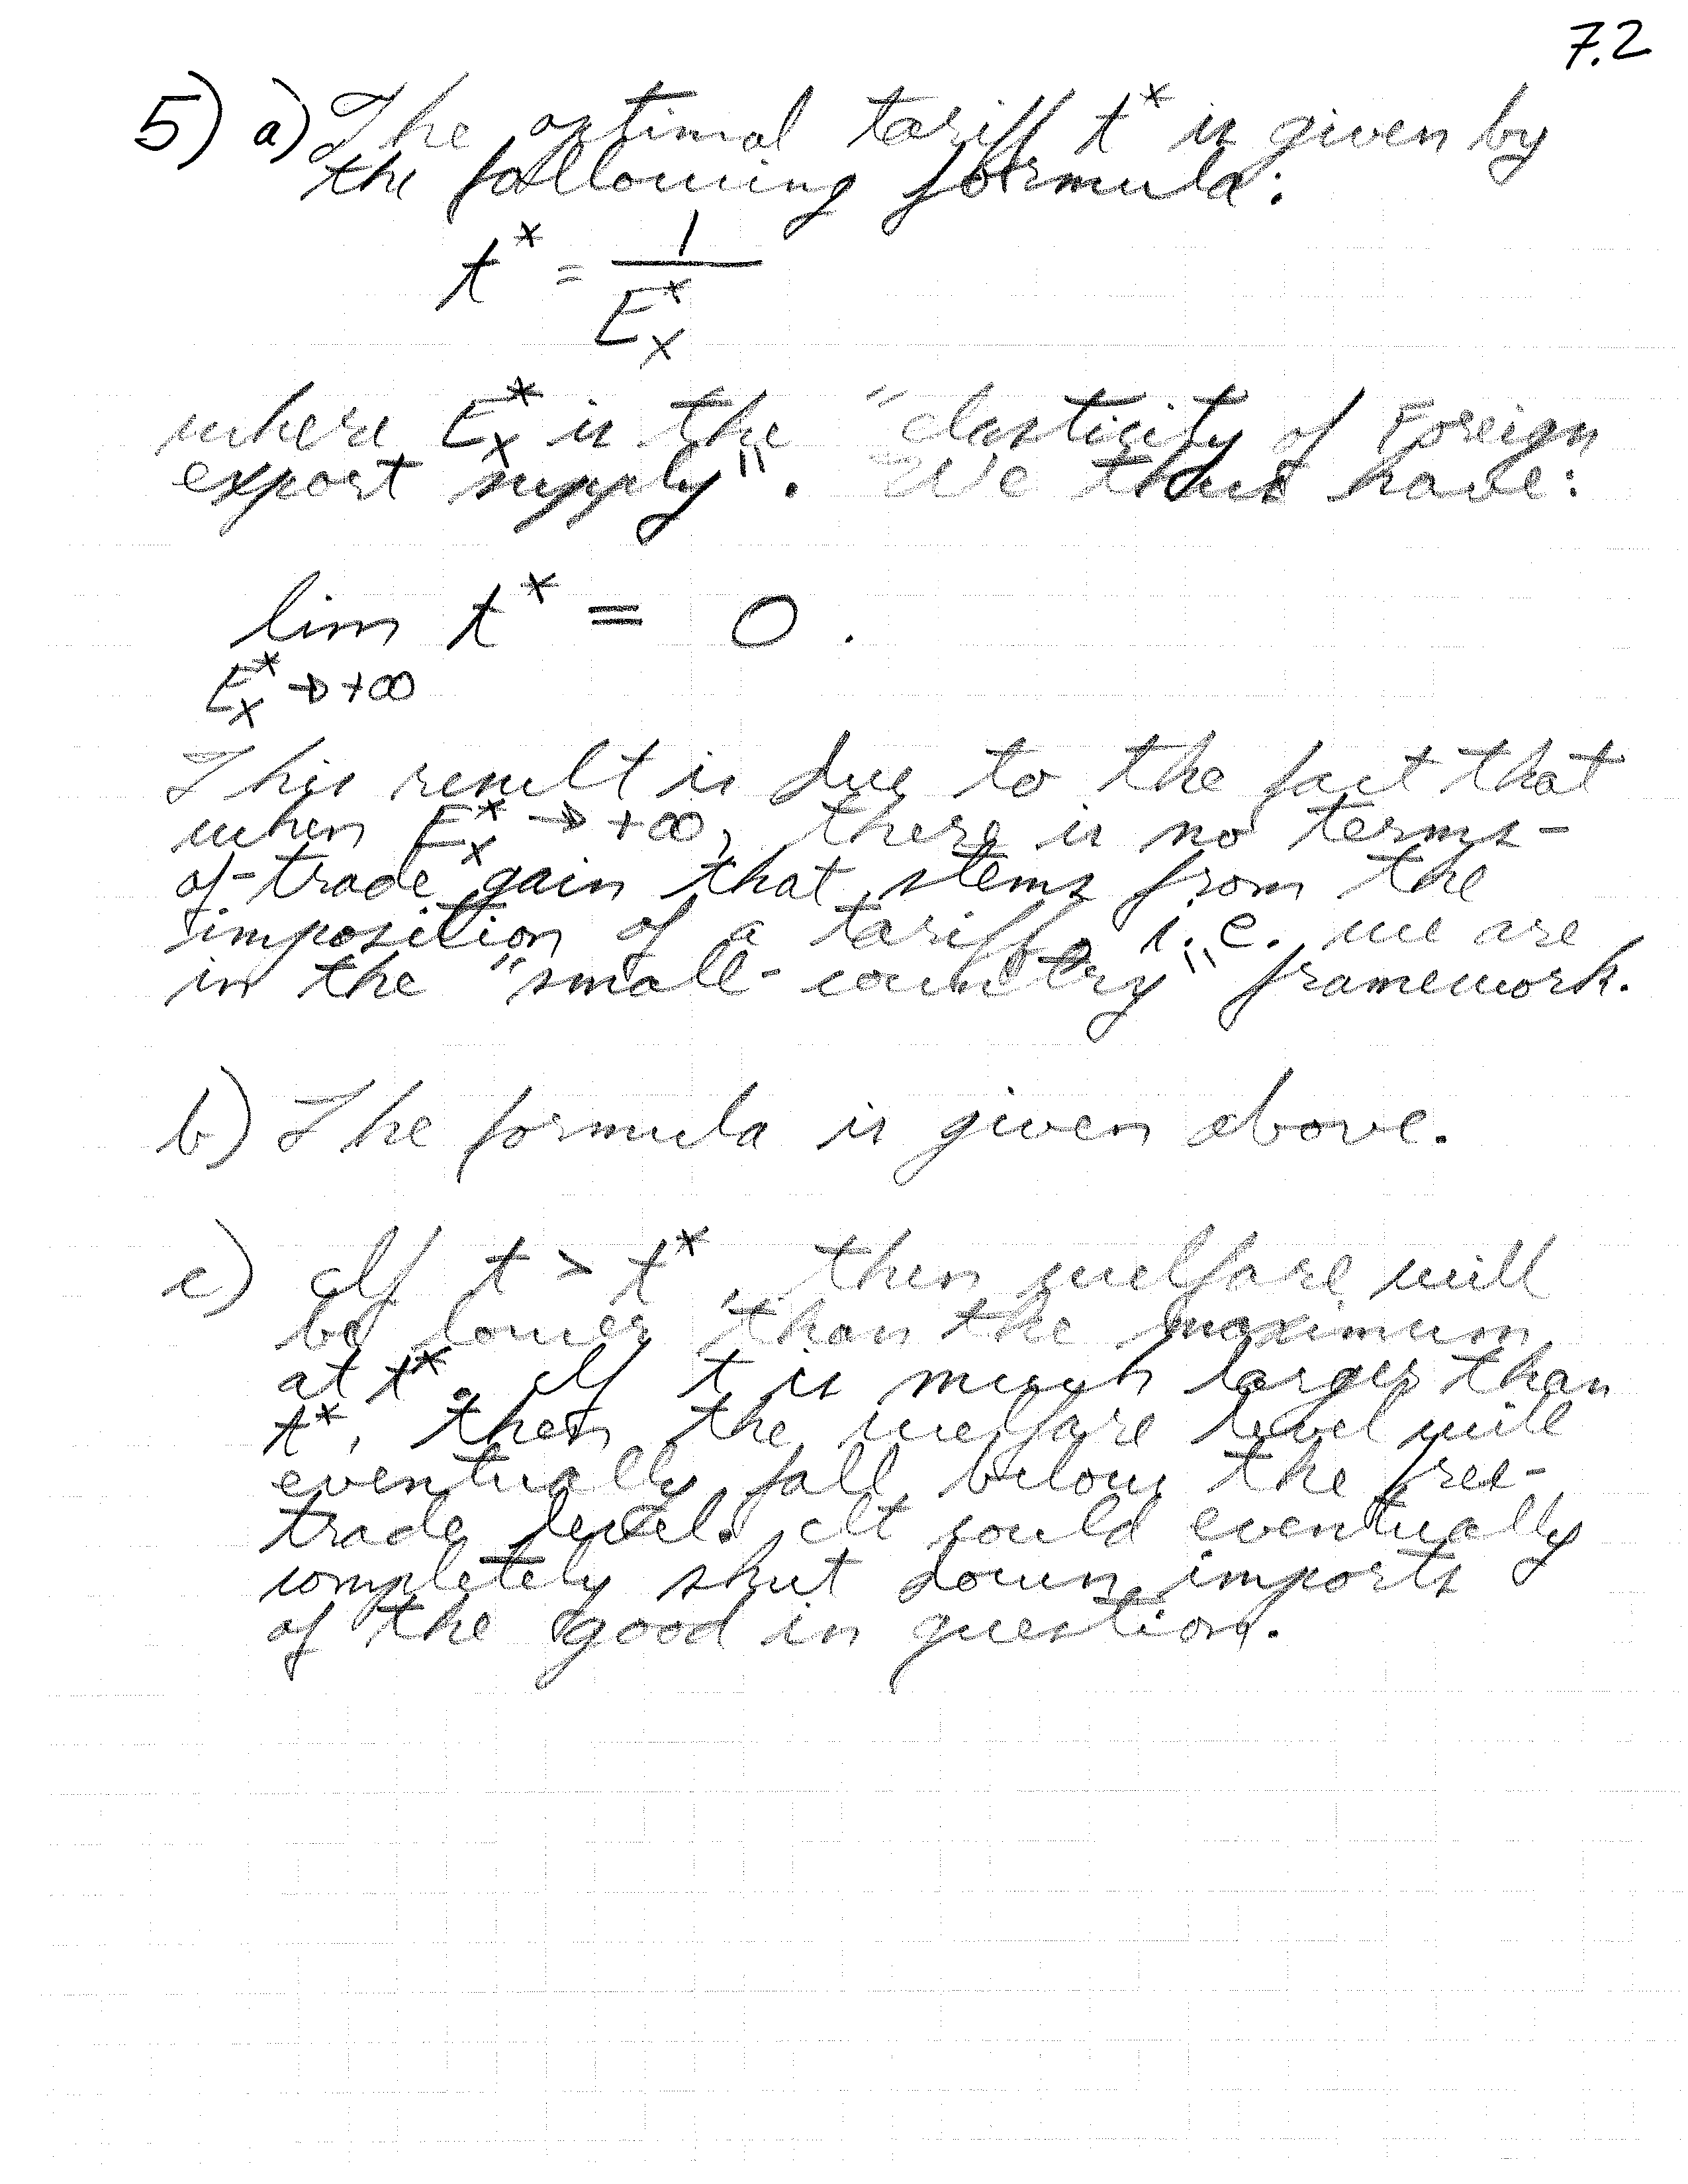 7.2
5) a) The optimal tariff t* is given by
the following formula:
t* = 1 / E*_X
where E*_X is the "elasticity of Foreign
export supply". We thus have:
lim t* = 0.
E*_X → +∞
This result is due to the fact that
when E*_X → +∞, there is no terms-
of-trade gain that stems from the
imposition of a tariff, i.e. we are
in the "small-country" framework.
b) The formula is given above.
c) If t > t*, then welfare will
be lower than the maximum
at t*. If t is much larger than
t*, then the welfare level will
eventually fall below the free-
trade level. It could eventually
completely shut down imports
of the good in question.